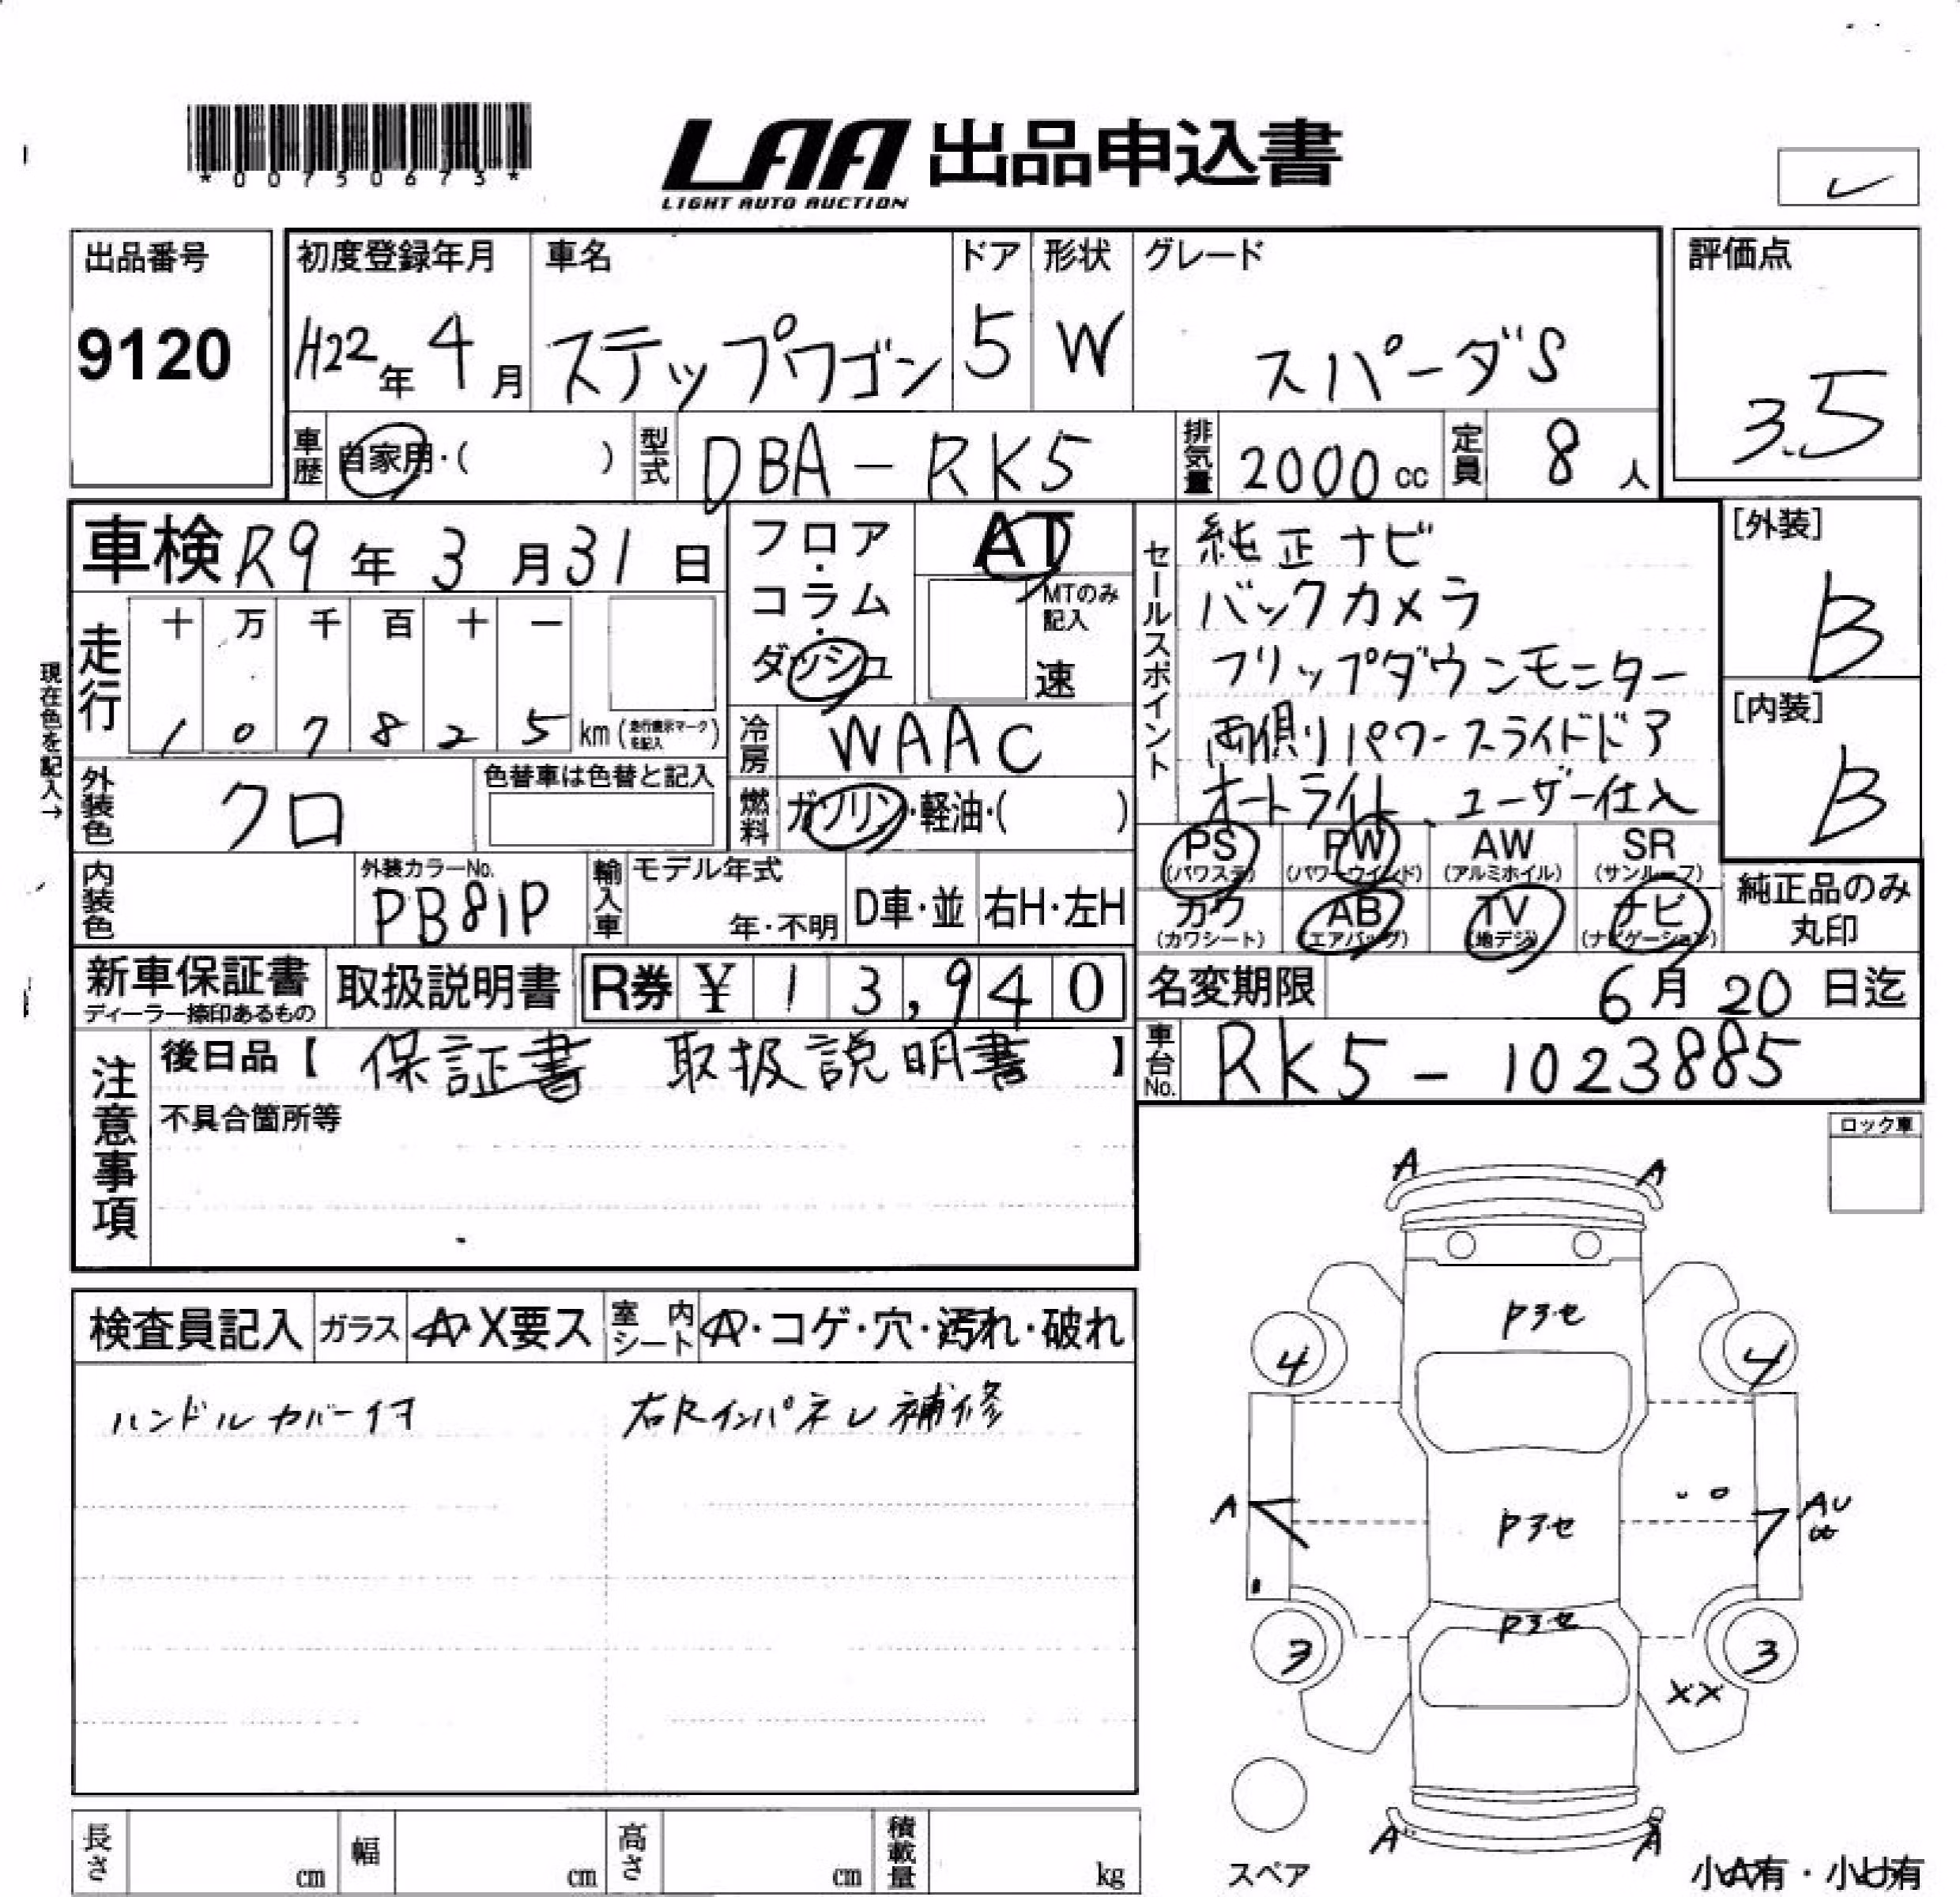 *00750673*
LAA 出品申込書
LIGHT AUTO AUCTION
レ
出品番号
9120
初度登録年月
H22年4月
車名
ステップワゴン
ドア
5
形状
W
グレード
スパーダS
評価点
3.5
車歴 自家用・( )
型式 DBA-RK5
排気量 2000cc
定員 8人
車検 R9年3月31日
フロア・コラム・ダッシュ
AT
MTのみ記入
速
セールスポイント
純正ナビ
バックカメラ
フリップダウンモニター
両側パワースライドドア
オートライト、ユーザー仕入
[外装]
B
[内装]
B
現在色を記入→
走行
十 万 千 百 十 一
1 0 7 8 2 5 km (走行表示マークを記入)
冷房 WAAC
外装色 クロ
色替車は色替と記入
燃料 ガソリン・軽油・( )
PS (パワステ)
PW (パワーウインド)
AW (アルミホイル)
SR (サンルーフ)
カワ (カワシート)
AB (エアバッグ)
TV (地デジ)
ナビ (ナビゲーション)
純正品のみ丸印
内装色
外装カラーNo.
PB81P
輸入車
モデル年式
年・不明
D車・並
右H・左H
新車保証書
ディーラー捺印あるもの
取扱説明書
R券 ¥13,940
名変期限 6月20日迄
車台No. RK5-1023885
注意事項
後日品【 保証書 取扱説明書 】
不具合箇所等
ロック車
検査員記入
ガラス A・X要ス
室内シート A・コゲ・穴・汚れ・破れ
ハンドルカバー付
右Rインパネレ補修
A A
Pヌセ
4 4
A
Pヌセ
AU
Pヌセ
3 3
XX
A A
スペア
小A有・小U有
長さ cm
幅 cm
高さ cm
積載量 kg